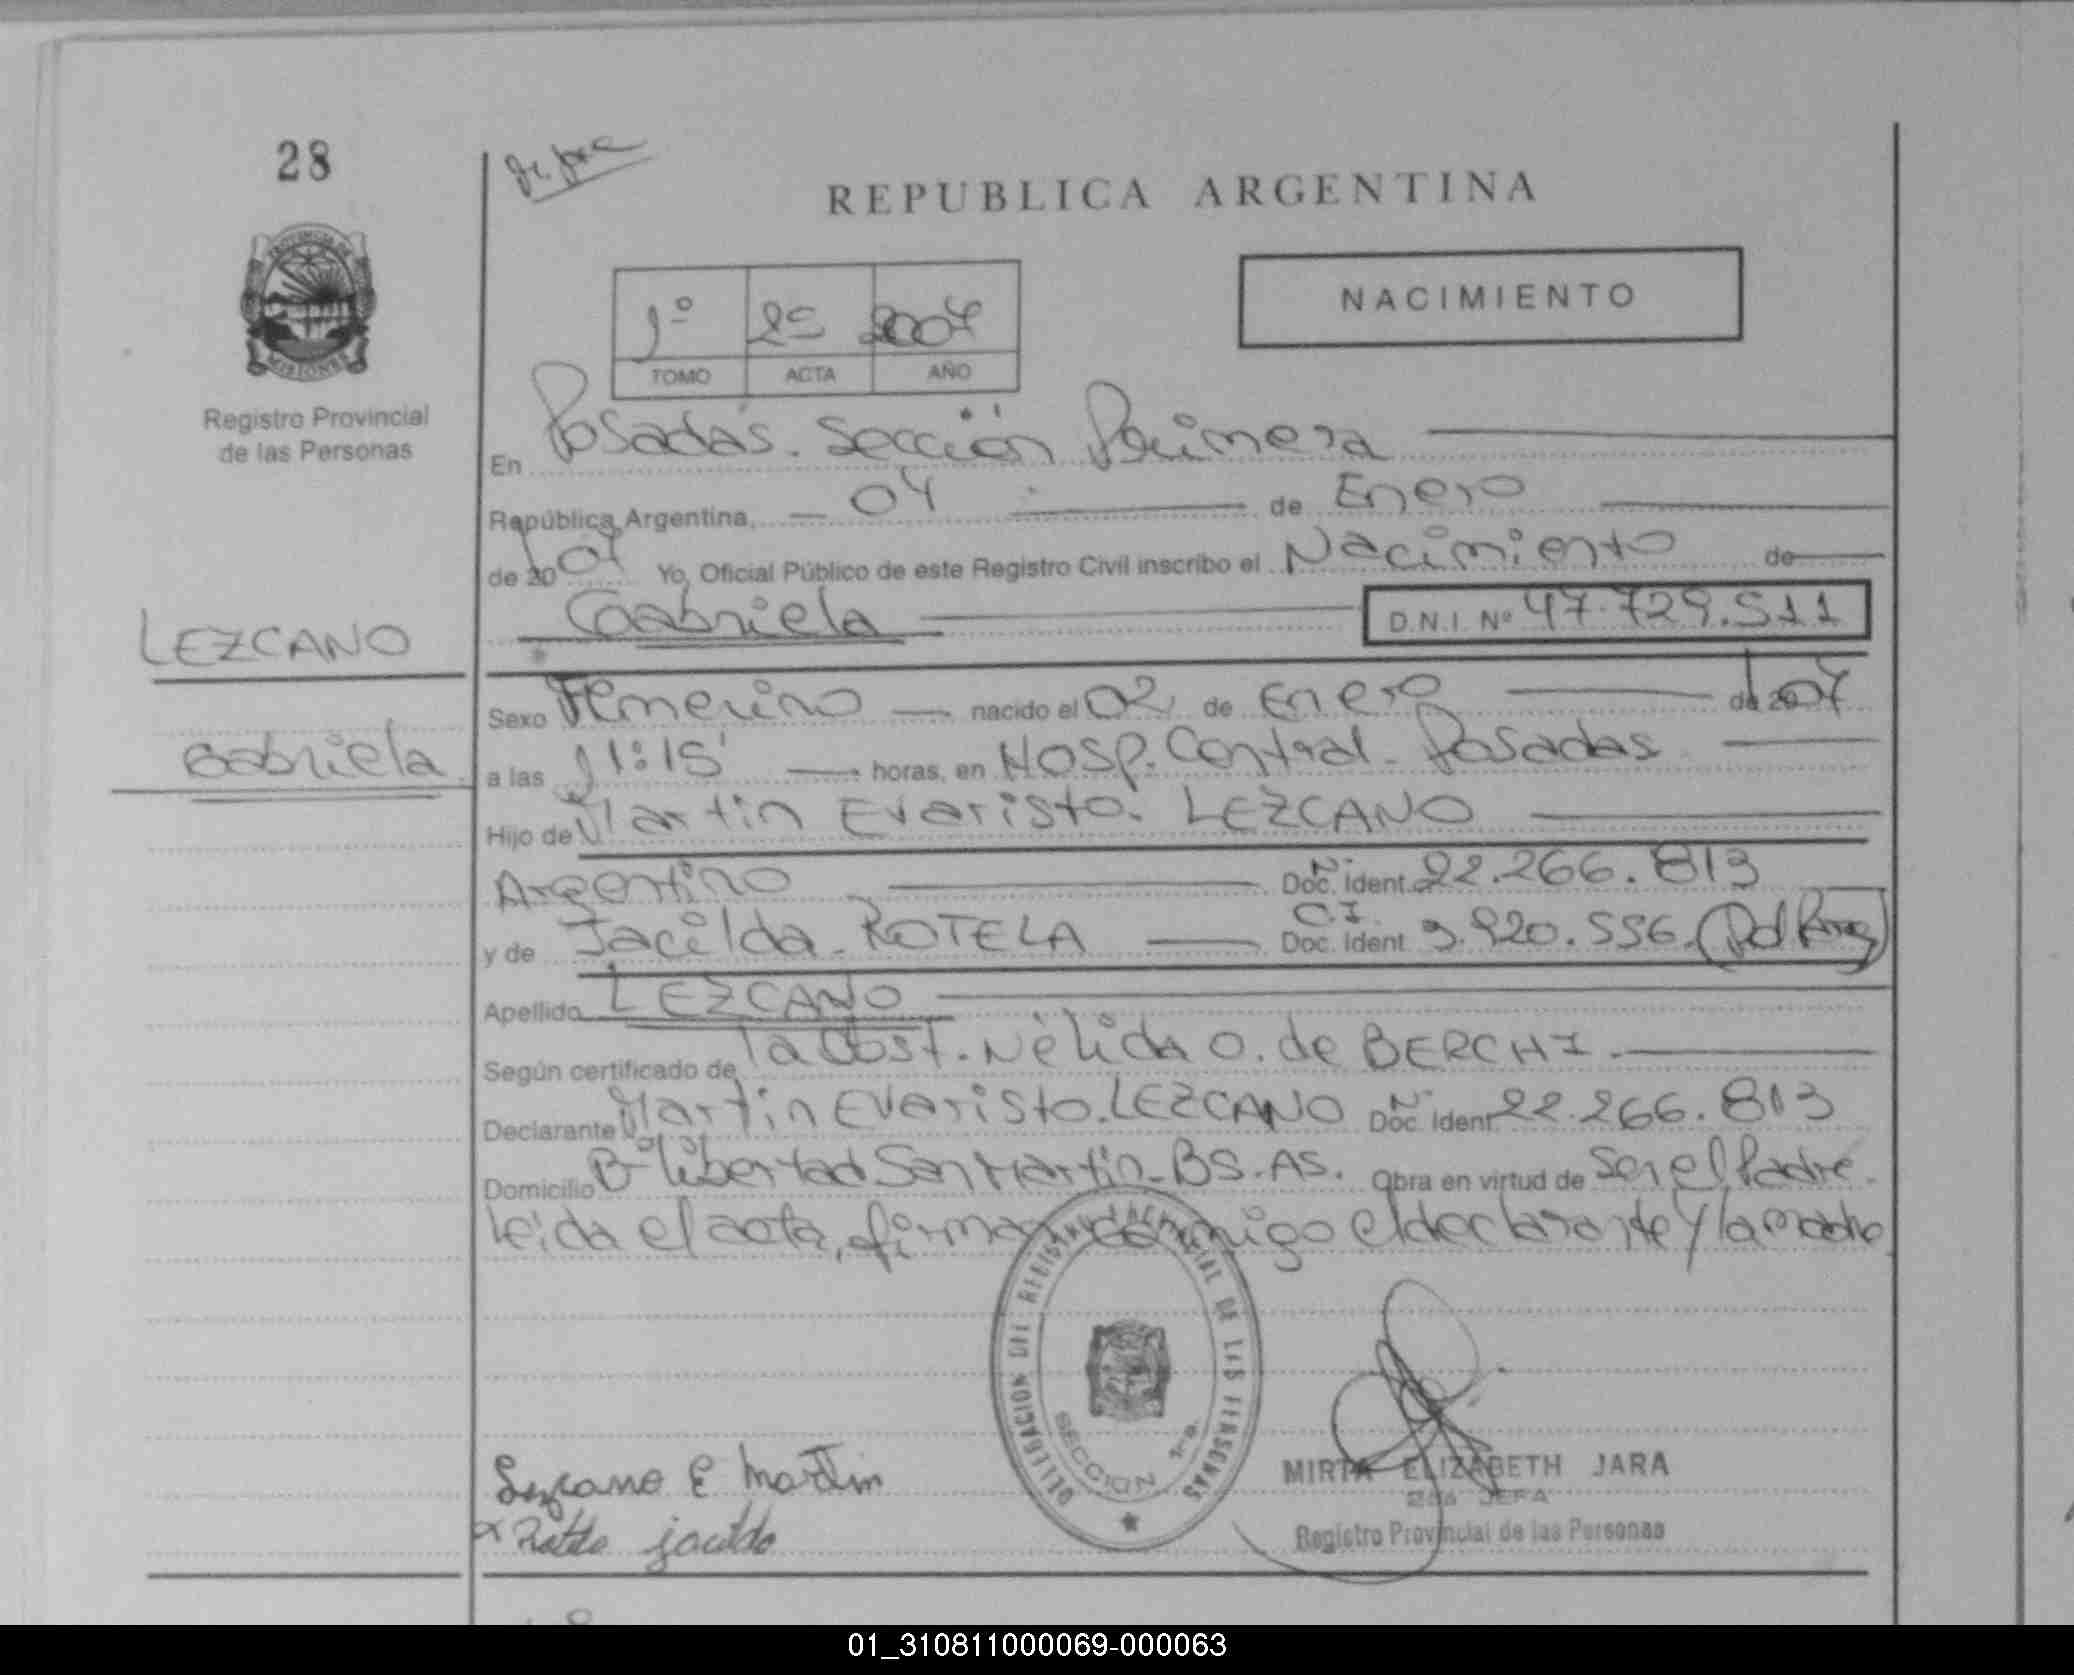 28
REPUBLICA ARGENTINA
PROVINCIA DE
MISIONES
NACIMIENTO
1º 28 2007
TOMO ACTA AÑO
Registro Provincial
de las Personas
En Posadas. Sección Primera
República Argentina, 04 de Enero
de 2007 Yo, Oficial Público de este Registro Civil inscribo el Nacimiento de
Gabriela D.N.I. Nº 47.729.511
LEZCANO
Gabriela
Sexo Femenino nacido el 02 de Enero de 2007
a las 11:15 horas, en Hosp. Central - Posadas
Hijo de Martin Evaristo. LEZCANO
Argentino Doc. Ident. Nº 22.266.813
y de Jacilda - ROTELA C.I. Doc. Ident. 3.920.556.
Apellido LEZCANO
Según certificado de la Obst. Nélida O. de BERCHI
Declarante Martin Evaristo. LEZCANO Doc. Ident. Nº 22.266.813
Domicilio Bº Libertad San Martin - BS. AS. Obra en virtud de ser el Padre.
Leida el acta, firman conmigo el declarante y la madre
DELEGACION DEL REGISTRO PROVINCIAL DE LAS PERSONAS
SECCION 1ra.
Lezcano E Martin
MIRTA ELIZABETH JARA
2da JEFA
Registro Provincial de las Personas
01_310811000069-000063